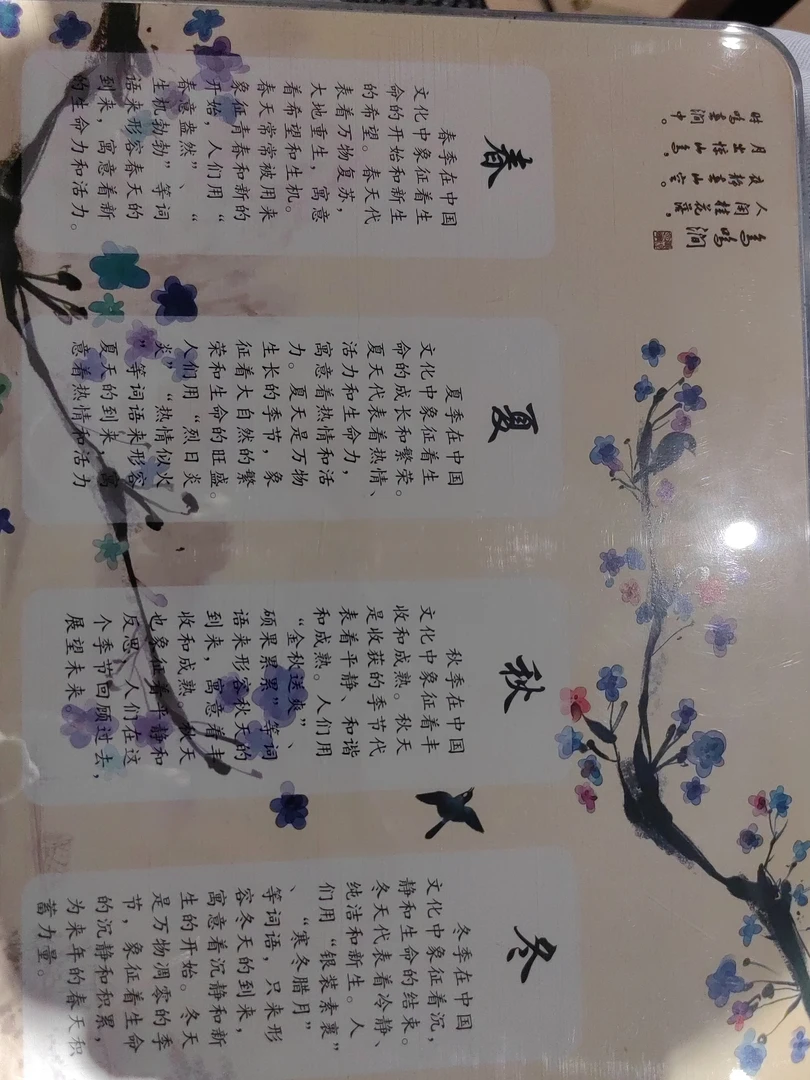 鸟鸣涧
人闲桂花落，
夜静春山空。
月出惊山鸟，
时鸣春涧中。
春
春季在中国
文化中象征着生
命的开始和新生
的希望。春天代
表着万物复苏，
大地重生，寓意
着希望和生机。
春天常常被用来
象征青春和新的
开始，人们用“
春意盎然”、“
生机勃勃”等词
语来形容春天的
到来，寓意着新
的生命力和活力。
夏
夏季在中国
文化中象征着生
命的成长和繁荣。
夏天代表着热情、
活力和生命力，
寓意着热情和活
力。夏天是万物
生长的季节，象
征着大自然的繁
荣和生命的旺盛。
人们用“烈日炎
炎”、“热情似火
”等词语来形容
夏天的到来，寓
意着热情和活力
。
秋
秋季在中国
文化中象征着丰
收和成熟。秋天
是收获的季节代
表着平静、和谐
和成熟。人们用
“金秋送爽”、
硕果累累”等词
语来形容秋天的
到来，寓意着丰
收和成熟。秋天
也象征着平静和
反思，人们在这
个季节回顾过去，
展望未来。
冬
冬季在中国
文化中象征着沉，
静和生命的结束。
冬天代表着冷静、
纯洁和新生。人
们用“银装素裹”
、“寒冬腊月”
等词语，只来形
容冬天的到来，
寓意着沉静和新
生的开始。冬天
是万物凋零的季
节，象征着生命
的沉静和积累，
为来年的春天积
蓄力量。